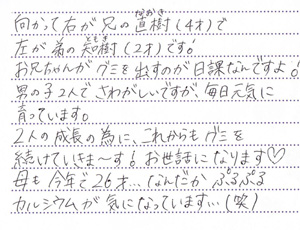 向かって右が兄の直樹(4才)で
左が弟の知樹(2才)です!
お兄ちゃんがグミを出すのが日課なんですよ!
男の子2人でさわがしいですが、毎日元気に
育っています。
2人の成長の為に、これからもグミを
続けていきま～す!お世話になります♡
母も今年で26才…なんだか ぷるぷる
カルシウムが気になっています…(笑)